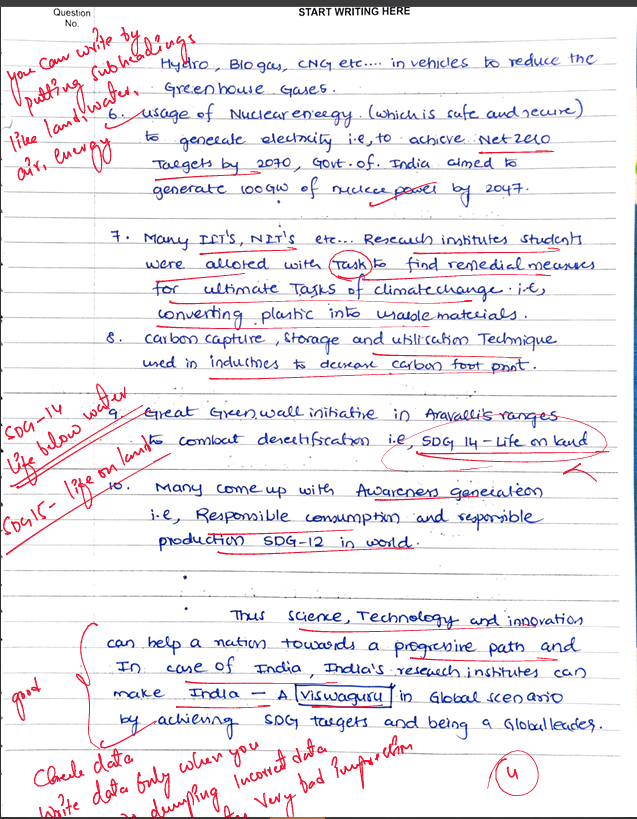 Question No.
START WRITING HERE
you can write by
putting subheadings
like land, water,
air, energy
Hydro, Biogas, CNG etc.... in vehicles to reduce the
Greenhouse Gases.
6. usage of Nuclear energy (which is safe and secure)
to generate electricity i.e, to achieve Net zero
Targets by 2070, Govt. of. India aimed to
generate 100 GW of nuclear power by 2047.
7. Many IIT's, NIT's etc... Research institutes students
were alloted with Task to find remedial measures
for ultimate Tasks of climate change. i.e,
converting plastic into usable materials.
8. carbon capture, Storage and utilisation Technique
used in industries to decrease carbon foot print.
SDG-14
Life below water
9. Great Green wall initiative in Aravalli's ranges
to combat desertification i.e, SDG 14 - Life on land
SDG15- life on land
10. Many come up with Awareness generation
i.e, Responsible consumption and responsible
production SDG-12 in world.
Thus science, Technology and innovation
can help a nation towards a progressive path and
In case of India, India's research institutes can
good
make India - A Viswaguru in Global scenario
by achieving SDG targets and being a Global leader.
Check data
Write data only when you
dumping incorrect data
very bad impression
4